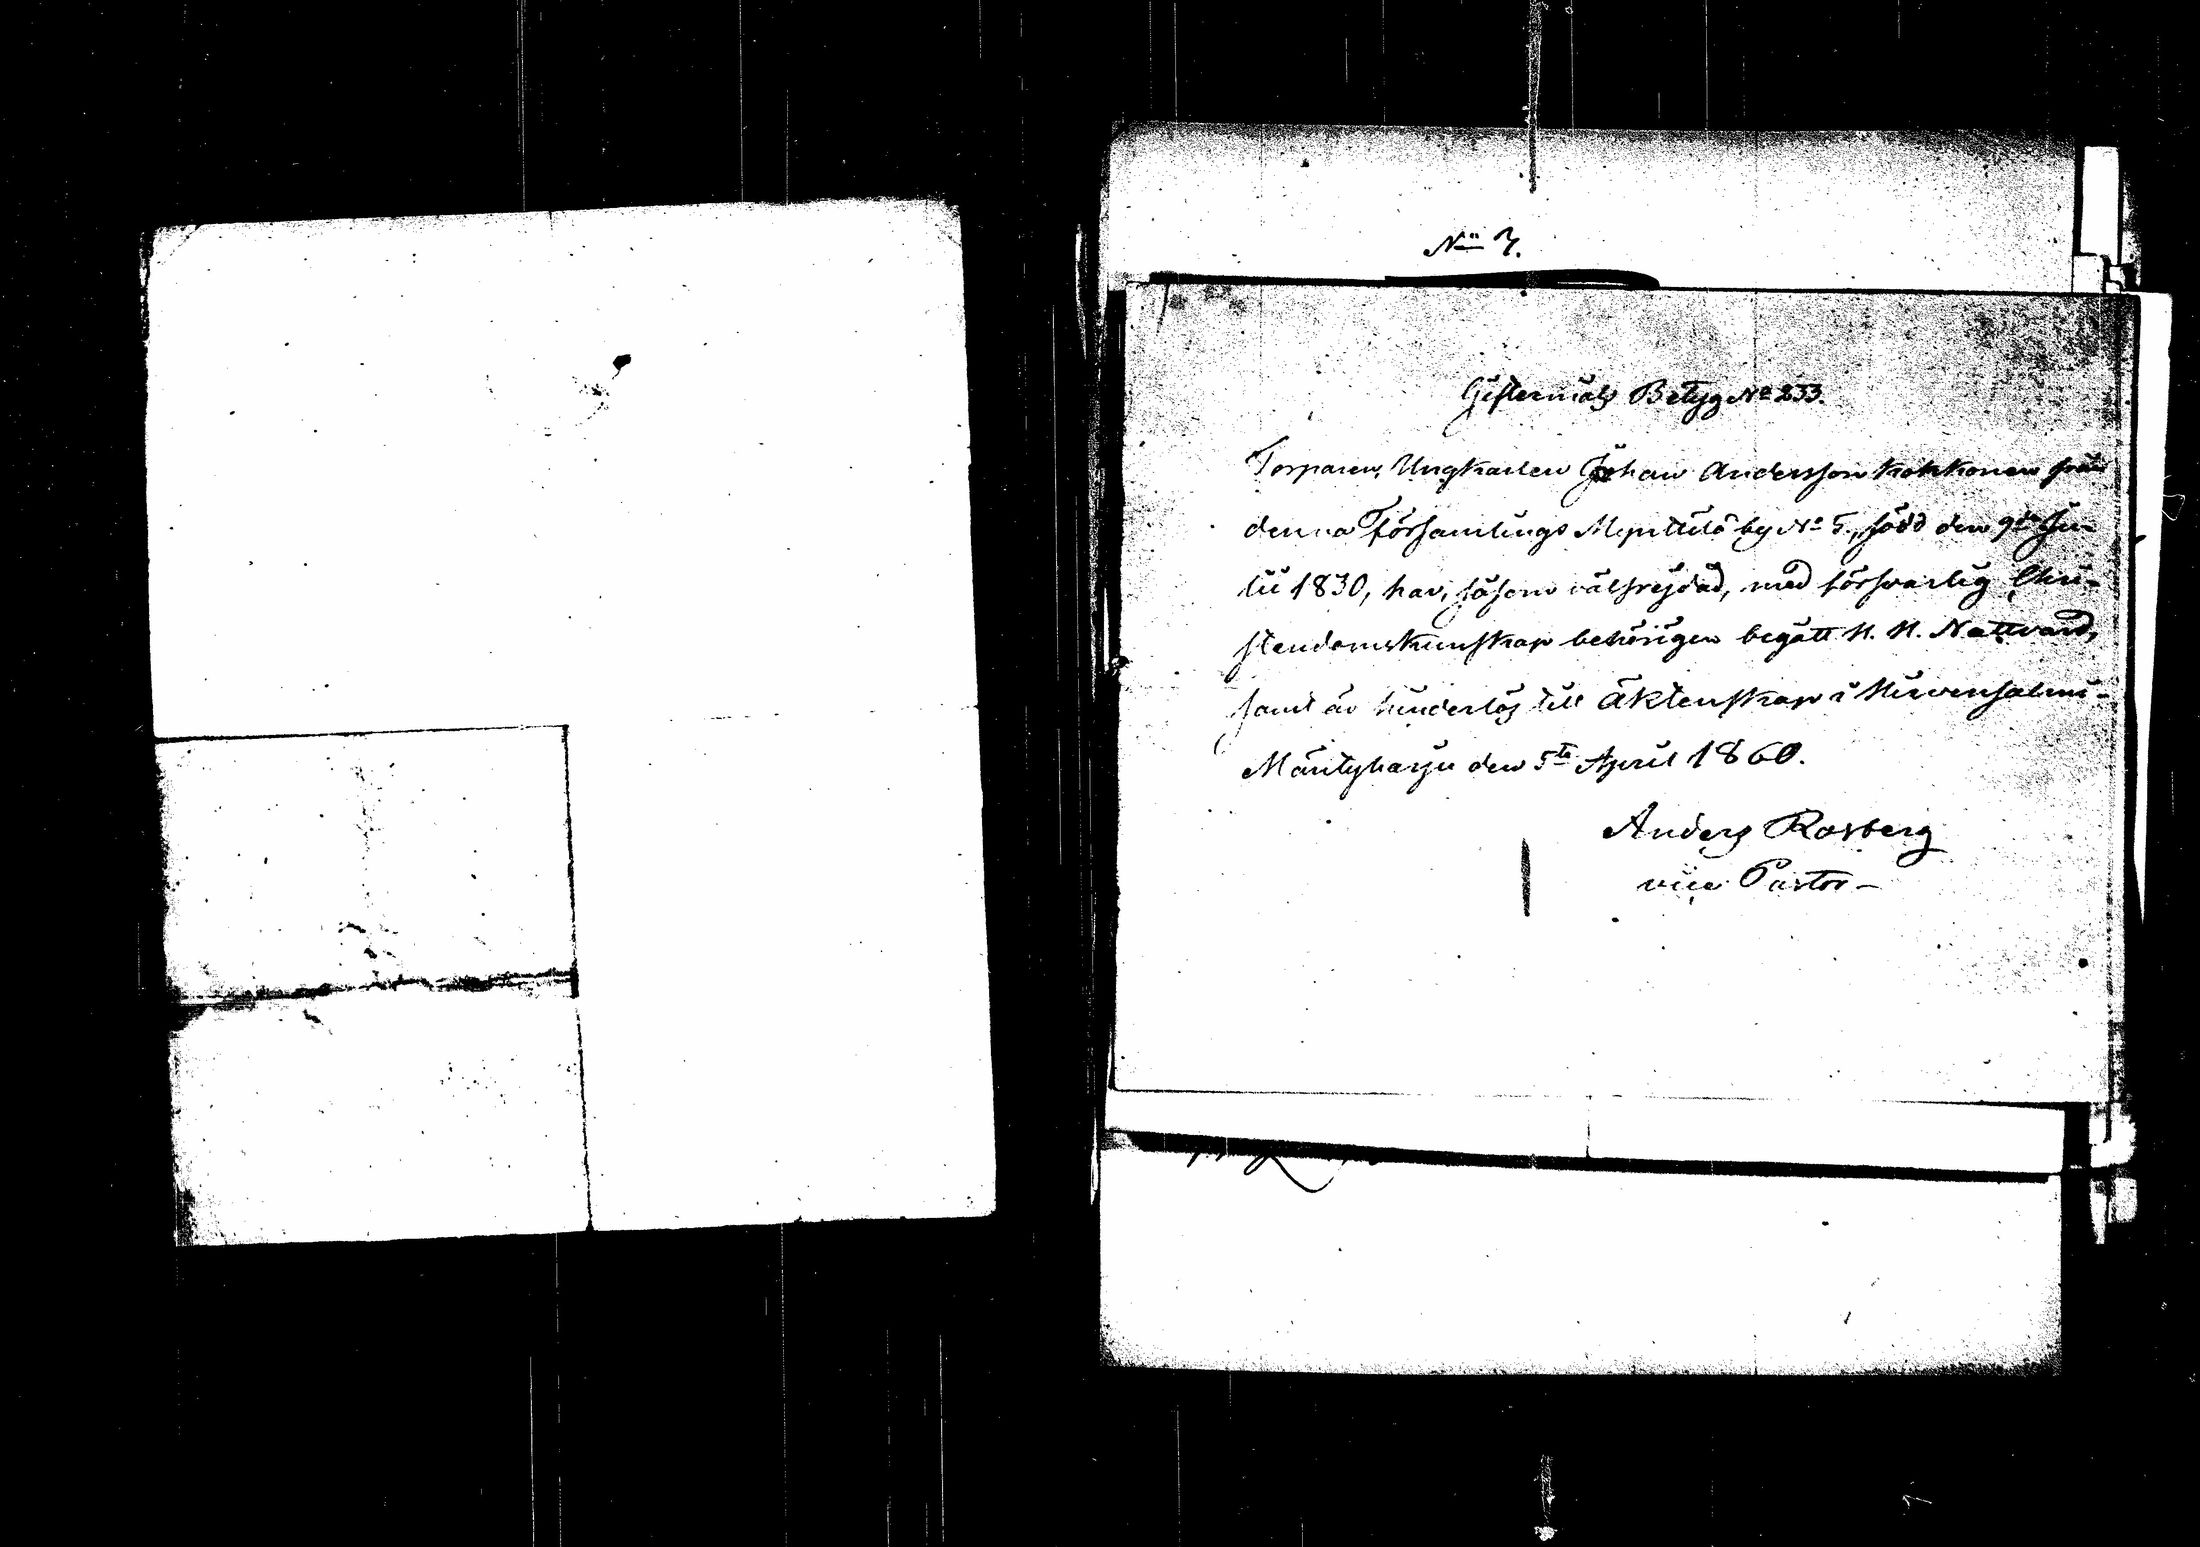 No 7.
Giftermåls Betyg No 233.
Torparen, Ungkarlen Johan Andersson Kokkonen från
denna Församlings Mynttilä by No 5, född den 9de Ju-
lii 1830, har, såsom välfrejdad, med försvarlig Chri-
stendomskunskap behörigen begått H. H. Nattvard,
samt är hinderlös till äktenskap i Hirvensalmi-
Mäntyharju den 5te April 1860.
Anders Rosberg
vice Pastor